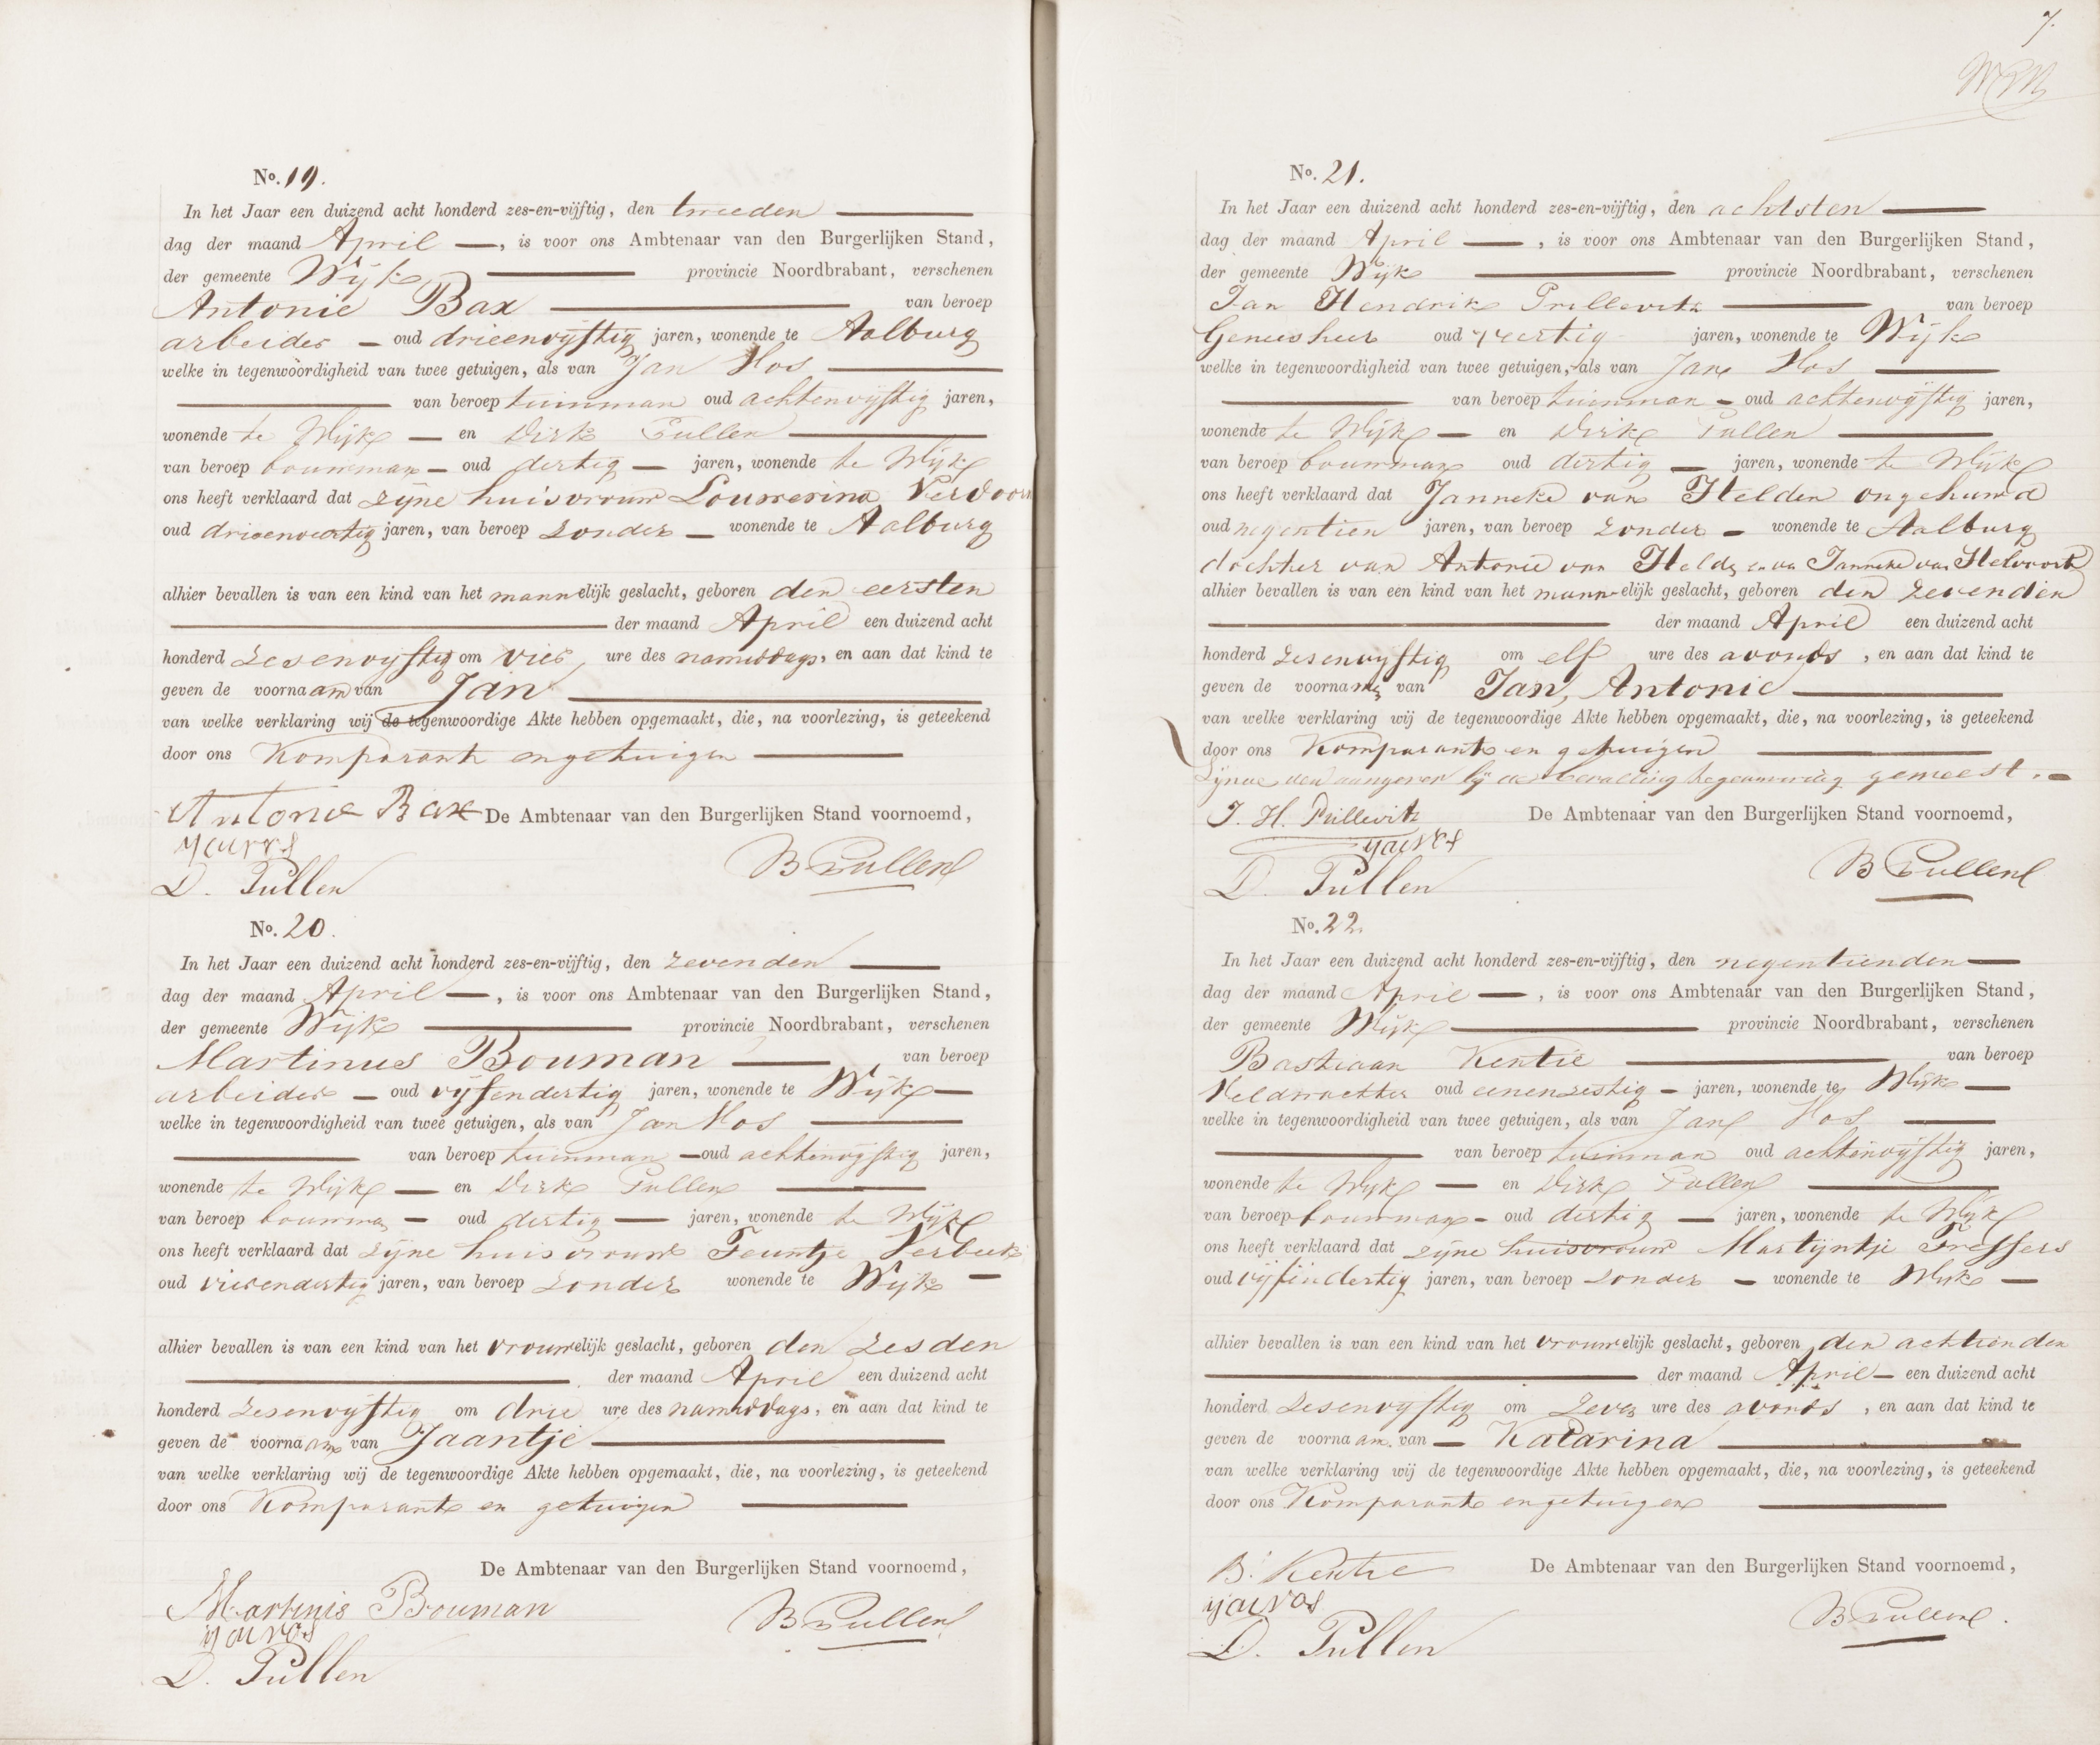 No. 19.
In het Jaar een duizend acht honderd zes-en-vijftig, den tweeden
dag der maand April, is voor ons Ambtenaar van den Burgerlijken Stand,
der gemeente Wijk provincie Noordbrabant, verschenen
Antonie Bax van beroep
arbeider oud drieenvijftig jaren, wonende te Aalburg
welke in tegenwoordigheid van twee getuigen, als van Jan Vos
van beroep tuinman oud achtenvijftig jaren,
wonende te Wijk en Dirk Pullen
van beroep bouwman oud dertig jaren, wonende te Wijk
ons heeft verklaard dat zijne huisvrouw Louwerina Verdoorn
oud drieenveertig jaren, van beroep zonder wonende te Aalburg
alhier bevallen is van een kind van het mannelijk geslacht, geboren den eersten
der maand April een duizend acht
honderd zesenvijftig om vier ure des namiddags, en aan dat kind te
geven de voornaam van Jan
van welke verklaring wij de tegenwoordige Akte hebben opgemaakt, die, na voorlezing, is geteekend
door ons Komparant en getuigen
Antonie Bax De Ambtenaar van den Burgerlijken Stand voornoemd,
B Pullen
D. Pullen
No. 20.
In het Jaar een duizend acht honderd zes-en-vijftig, den zevenden
dag der maand April, is voor ons Ambtenaar van den Burgerlijken Stand,
der gemeente Wijk provincie Noordbrabant, verschenen
Martinus Bouman van beroep
arbeider oud vijfendertig jaren, wonende te Wijk
welke in tegenwoordigheid van twee getuigen, als van Jan Vos
van beroep tuinman oud achtenvijftig jaren,
wonende te Wijk en Dirk Pullen
van beroep bouwman oud dertig jaren, wonende te Wijk
ons heeft verklaard dat zijne huisvrouw Teuntje Verbeek
oud vierendertig jaren, van beroep zonder wonende te Wijk
alhier bevallen is van een kind van het vrouwelijk geslacht, geboren den zesden
der maand April een duizend acht
honderd zesenvijftig om drie ure des namiddags, en aan dat kind te
geven de voornaam van Jaantje
van welke verklaring wij de tegenwoordige Akte hebben opgemaakt, die, na voorlezing, is geteekend
door ons Komparant en getuigen
De Ambtenaar van den Burgerlijken Stand voornoemd,
Martinis Bouman B Pullen
D. Pullen
7.
No. 21.
In het Jaar een duizend acht honderd zes-en-vijftig, den achtsten
dag der maand April, is voor ons Ambtenaar van den Burgerlijken Stand,
der gemeente Wijk provincie Noordbrabant, verschenen
Jan Hendrik Prillevitz van beroep
Geneesheer oud veertig jaren, wonende te Wijk
welke in tegenwoordigheid van twee getuigen, als van Jan Vos
van beroep tuinman oud achtenvijftig jaren,
wonende te Wijk en Dirk Pullen
van beroep bouwman oud dertig jaren, wonende te Wijk
ons heeft verklaard dat Janneke van Helden ongehuwd
oud negentien jaren, van beroep zonder wonende te Aalburg
dochter van Antonie van Helden en van Janneke van Helvoort
alhier bevallen is van een kind van het mannelijk geslacht, geboren den zevenden
der maand April een duizend acht
honderd zesenvijftig om elf ure des avonds, en aan dat kind te
geven de voornamen van Jan, Antonie
van welke verklaring wij de tegenwoordige Akte hebben opgemaakt, die, na voorlezing, is geteekend
door ons Komparant en getuigen
zijnde den aangever bij de bevalling tegenwoordig geweest.
J. H. Prillevitz De Ambtenaar van den Burgerlijken Stand voornoemd,
B Pullen
D. Pullen
No. 22.
In het Jaar een duizend acht honderd zes-en-vijftig, den negentienden
dag der maand April, is voor ons Ambtenaar van den Burgerlijken Stand,
der gemeente Wijk provincie Noordbrabant, verschenen
Bastiaan Kentie van beroep
Veldwachter oud eenenzestig jaren, wonende te Wijk
welke in tegenwoordigheid van twee getuigen, als van Jan Vos
van beroep tuinman oud achtenvijftig jaren,
wonende te Wijk en Dirk Pullen
van beroep bouwman oud dertig jaren, wonende te Wijk
ons heeft verklaard dat zijne huisvrouw Martijntje Treffers
oud vijfendertig jaren, van beroep zonder wonende te Wijk
alhier bevallen is van een kind van het vrouwelijk geslacht, geboren den achttienden
der maand April een duizend acht
honderd zesenvijftig om zeven ure des avonds, en aan dat kind te
geven de voornaam van Katarina
van welke verklaring wij de tegenwoordige Akte hebben opgemaakt, die, na voorlezing, is geteekend
door ons Komparant en getuigen
B. Kentie De Ambtenaar van den Burgerlijken Stand voornoemd,
B Pullen
D. Pullen